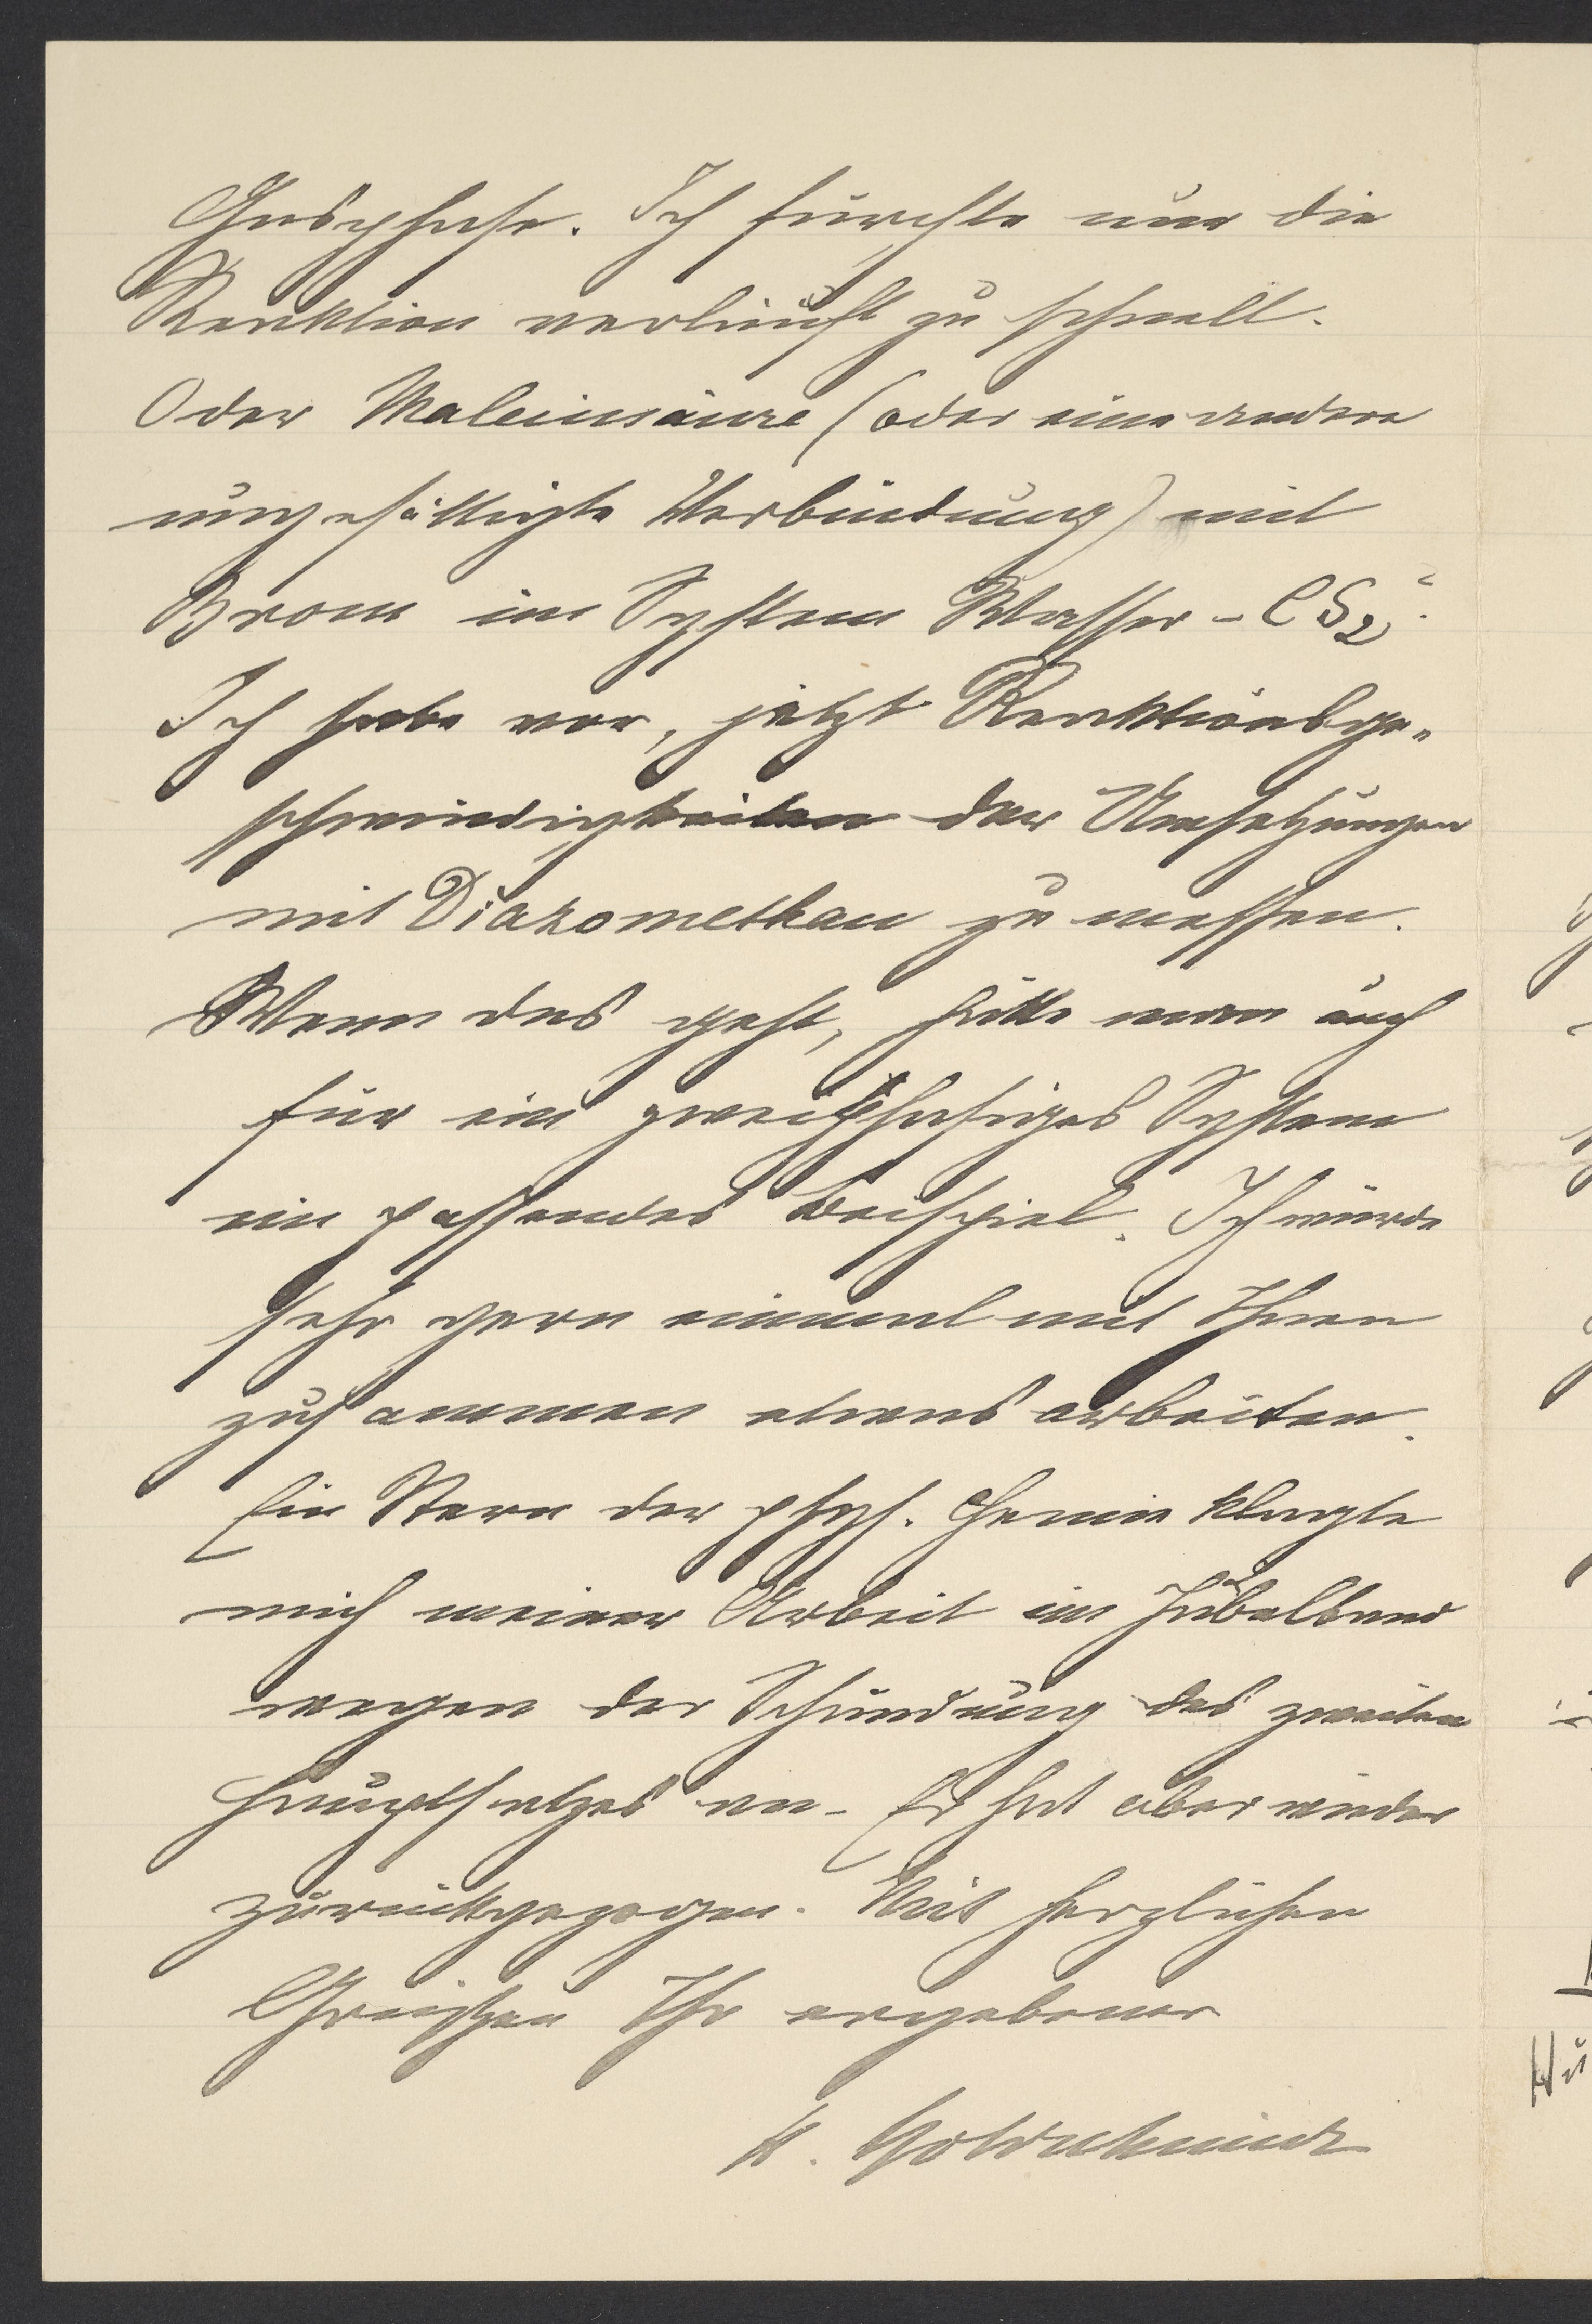 Gasphase. Ich fürchte nur die
Reaktion verläuft zu schnell.
Oder Maleinsäure (oder eine andere
ungesättigte Verbindung) mit
Brom im System Wasser - CS₂.
Ich habe vor, jetzt Reaktionsge-
schwindigkeiten der Umsetzungen
mit Diazomethan zu messen.
Wenn das geht, hätte man auch
für ein zweiphasiges System
ein passendes Beispiel. Ich würde
sehr gern einmal mit Ihnen
zusammen etwas arbeiten.
Ein Stern der phys. Chemie klagte
mich meiner Arbeit im Jubelband
wegen der Schändung des zweiten
Hauptsatzes an - Er hat aber wieder
zurückgezogen. Mit herzlichen
Grüßen Ihr ergebener
H. Goldschmidt